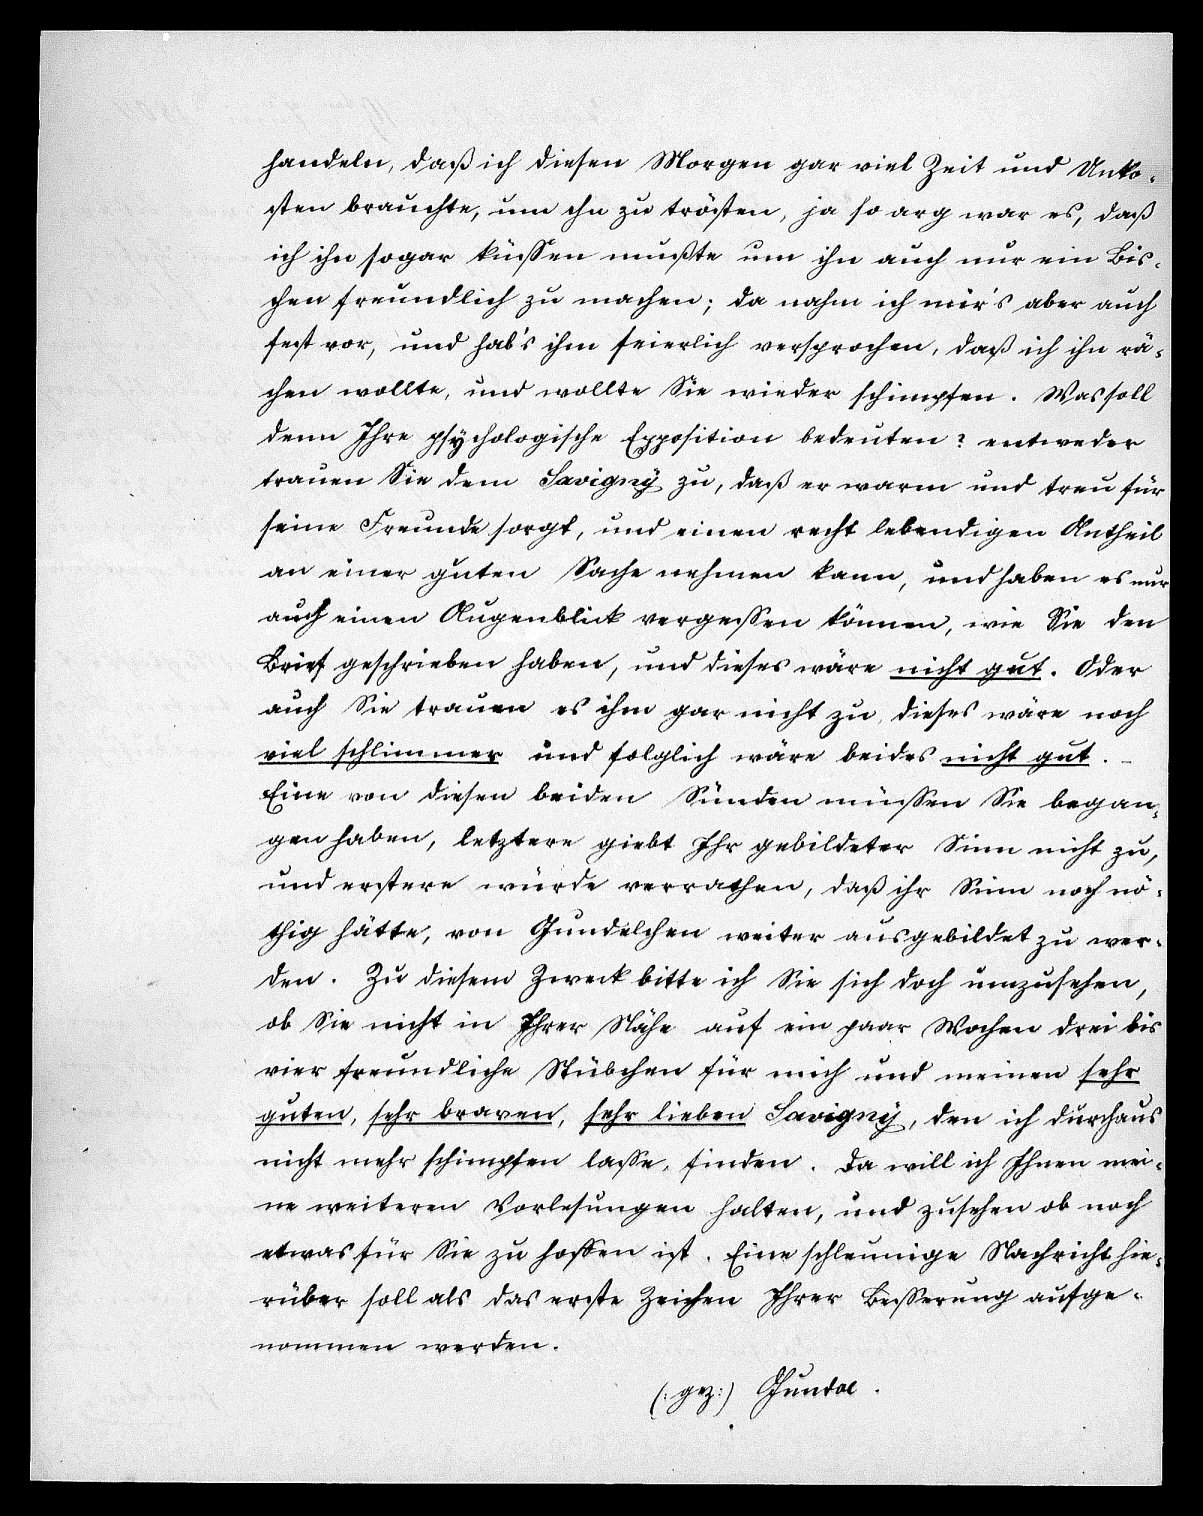 handeln, daß ich diesen Morgen gar viel Zeit und Unko-
sten brauchte, um ihn zu trösten, ja so arg war es, daß
ich ihn sogar küssen mußte um ihn auch nur ein Bis-
chen freundlich zu machen; da nahm ich mir's aber auch
fest vor, und hab's ihm feierlich versprochen, daß ich ihn rä-
chen wollte, und wollte Sie wieder schimpfen. Was soll
denn Ihre psÿchologische Exposition bedeuten? entweder
trauen Sie dem Savignÿ zu, daß er warm und treu für
seine Freunde sorgt, und einen recht lebendigen Antheil
an einer guten Sache nehmen kann, und haben es nur
auch einen Augenblick vergessen können, wie Sie den
Brief geschrieben haben, und dieses wäre nicht gut. Oder
auch Sie trauen es ihm gar nicht zu, dieses wäre noch
viel schlimmer und folglich wäre beides nicht gut. –
Eine von diesen beiden Sünden müssen Sie began-
gen haben, letztere giebt Ihr gebildeter Sinn nicht zu,
und erstere würde verrathen, daß ihr Sinn noch nö-
thig hätte, von Gundelchen weiter ausgebildet zu wer-
den. Zu diesem Zweck bitte ich Sie sich doch umzusehen,
ob Sie nicht in Ihrer Nähe auf ein paar Wochen drei bis
vier freundliche Stübchen für mich und meinen sehr
guten, sehr braven, sehr lieben Savignÿ, den ich durchaus
nicht mehr schimpfen lasse, finden. Da will ich Ihnen mei-
ne weiteren Vorlesungen halten, und zusehen ob noch
etwas für Sie zu hoffen ist. Eine schleunige Nachricht hie-
rüber soll als das erste Zeichen Ihrer Besserung aufge-
nommen werden.
(: gez:) Gundel.